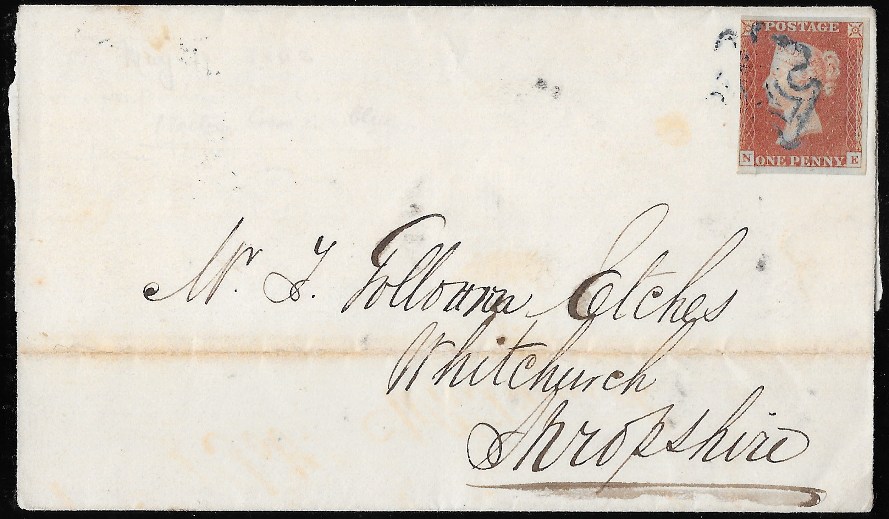 POSTAGE
N ONE PENNY E
Mr. J. Etches
Whitchurch
Shropshire